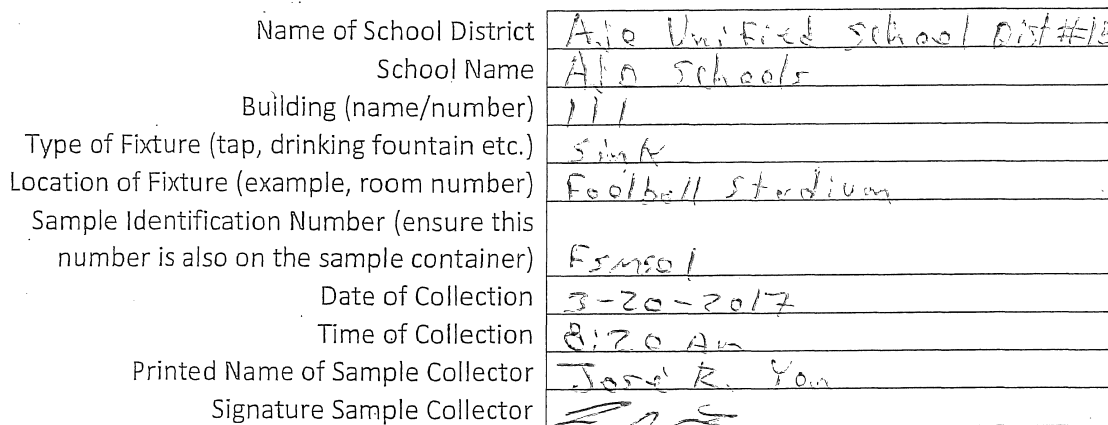 Name of School District Ajo Unified School Dist #15
School Name Ajo Schools
Building (name/number) 111
Type of Fixture (tap, drinking fountain etc.) Sink
Location of Fixture (example, room number) Football Stadium
Sample Identification Number (ensure this
number is also on the sample container) FSMS01
Date of Collection 3-20-2017
Time of Collection 8:20 Am
Printed Name of Sample Collector José R.
Signature Sample Collector